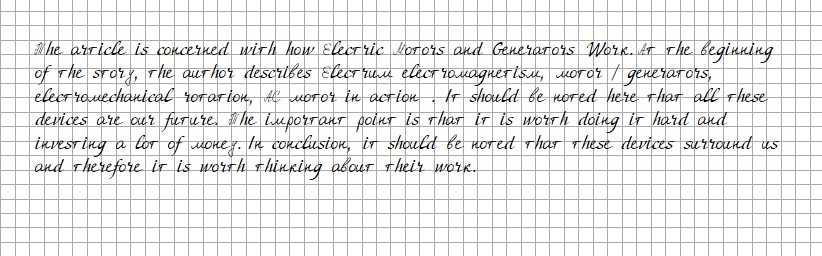 The article is concerned with how Electric Motors and Generators Work. At the beginning
of the story, the author describes Electrum electromagnetism, motor / generators,
electromechanical rotation, AC motor in action . It should be noted here that all these
devices are our future. The important point is that it is worth doing it hard and
investing a lot of money. In conclusion, it should be noted that these devices surround us
and therefore it is worth thinking about their work.